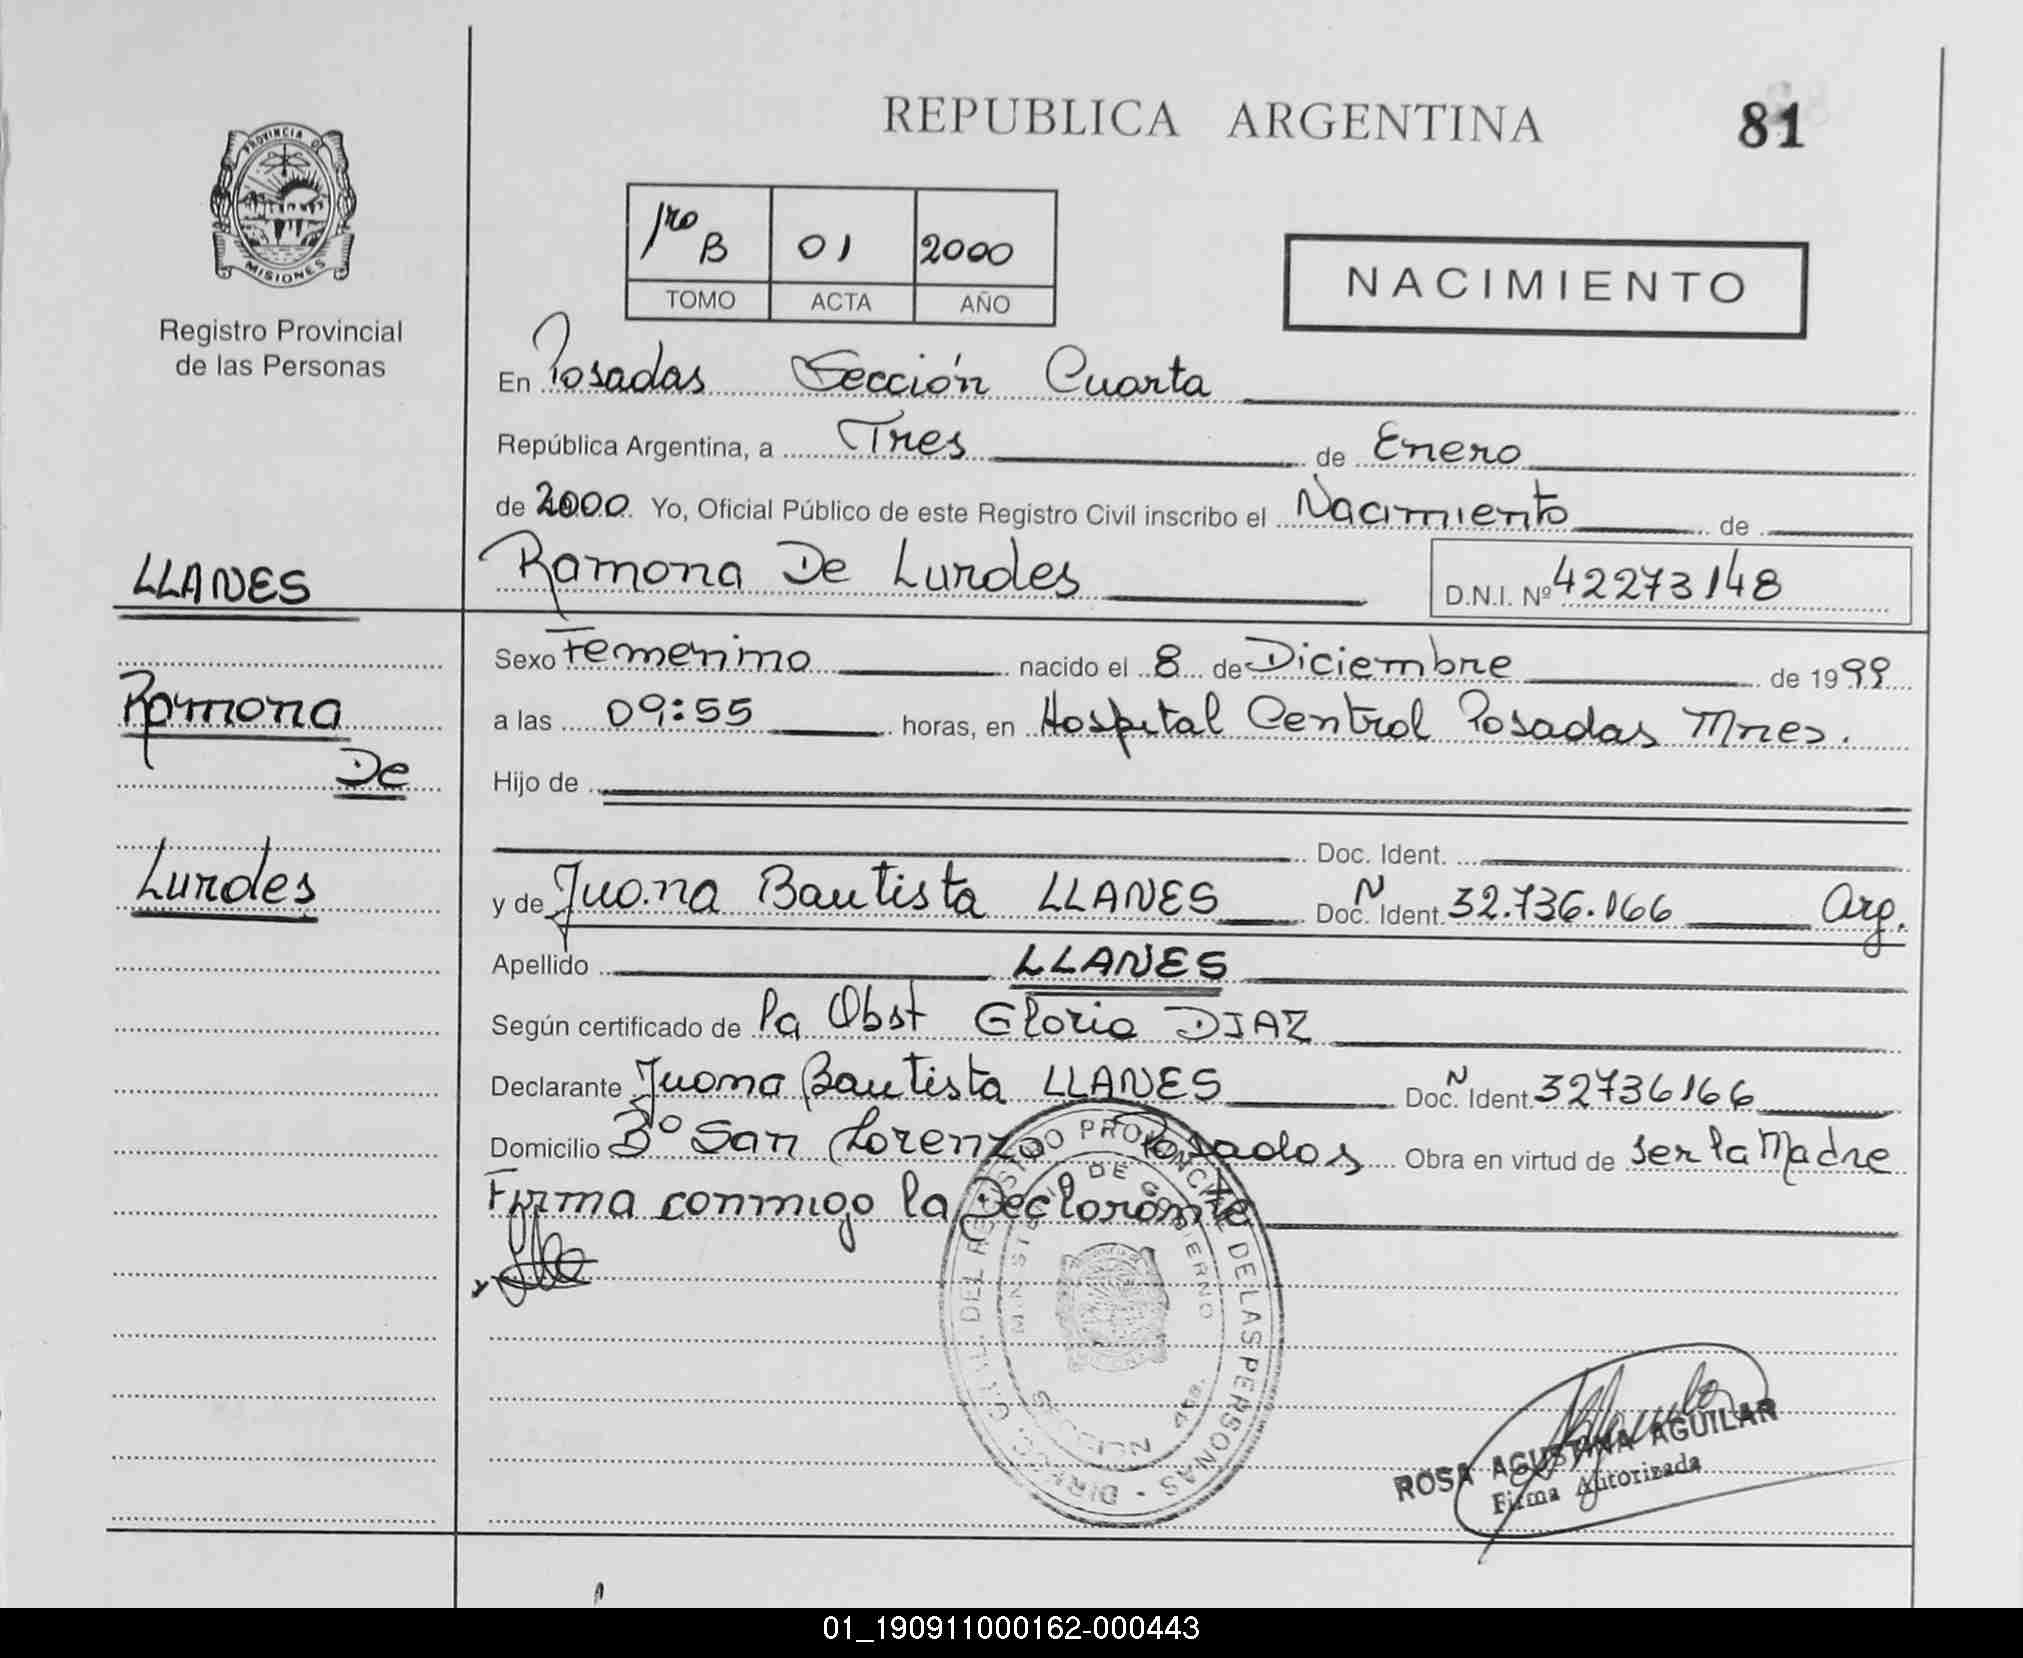 REPUBLICA ARGENTINA
81
PROVINCIA DE
MISIONES
Registro Provincial
de las Personas
1ro B 01 2000
TOMO ACTA AÑO
NACIMIENTO
En Posadas Sección Cuarta
República Argentina, a Tres de Enero
de 2000 Yo, Oficial Público de este Registro Civil inscribo el Nacimiento de
Ramona De Lurdes D.N.I. Nº 42273148
LLANES
Ramona
De
Lurdes
Sexo Femenino nacido el 8 de Diciembre de 1999
a las 09:55 horas, en Hospital Central Posadas Mnes.
Hijo de
Doc. Ident.
y de Juana Bautista LLANES Doc. N Ident. 32.736.166 Arg.
Apellido LLANES
Según certificado de la Obst Gloria DIAZ
Declarante Juana Bautista LLANES Doc. N Ident. 32736166
Domicilio Bº San Lorenzo Posadas Obra en virtud de ser la Madre
Firma conmigo la Declarante
DIRECC. GRAL. DEL REGISTRO PROVINCIAL DE LAS PERSONAS
MINISTERIO DE GOBIERNO
SECCION 4ta.
ROSA AGUSTINA AGUILAR
Firma Autorizada
01_190911000162-000443